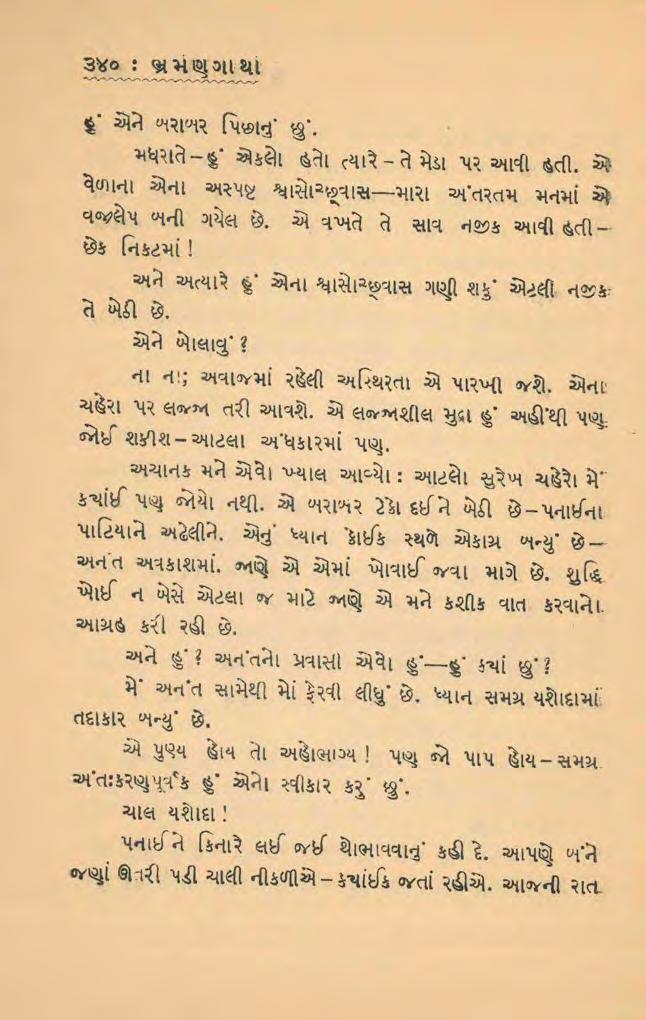 ૩૪૦ : ભ્રમણગાથા
હું એને બરાબર પિછાનું છું.
મધરાતે – હું એકલો હતો ત્યારે – તે મેડા પર આવી હતી. એ
વેળાના એના અસ્પષ્ટ શ્વાસોચ્છ્‌વાસ—મારા અંતરતમ મનમાં એ
વજ્રલેપ બની ગયેલ છે. એ વખતે તે સાવ નજીક આવી હતી –
છેક નિકટમાં !
અને અત્યારે હું એના શ્વાસોચ્છ્‌વાસ ગણી શકું એટલી નજીક
તે બેઠી છે.
એને બોલાવું ?
ના ના; અવાજમાં રહેલી અસ્થિરતા એ પારખી જશે. એના
ચહેરા પર લજ્જા તરી આવશે. એ લજ્જાશીલ મુદ્રા હું અહીંથી પણ
જોઈ શકીશ – આટલા અંધકારમાં પણ.
અચાનક મને એવો ખ્યાલ આવ્યો : આટલો સુરેખ ચહેરો મેં
કયાંઈ પણ જોયો નથી. એ બરાબર ટેકો દઈને બેઠી છે – પનાઈના
પાટિયાને અઢેલીને. એનું ધ્યાન કોઈક સ્થળે એકાગ્ર બન્યું છે –
અનંત અવકાશમાં. જાણે એ એમાં ખોવાઈ જવા માગે છે. શુદ્ધિ
ખોઈ ન બેસે એટલા જ માટે જાણે એ મને કશીક વાત કરવાનો
આગ્રહ કરી રહી છે.
અને હું ? અનંતનો પ્રવાસી એવો હું—હું કયાં છું ?
મેં અનંત સામેથી મોં ફેરવી લીધું છે. ધ્યાન સમગ્ર યશોદામાં
તદાકાર બન્યું છે.
એ પુણ્ય હોય તો અહોભાગ્ય ! પણ જો પાપ હોય – સમગ્ર
અંતઃકરણપૂર્વક હું એનો સ્વીકાર કરું છું.
ચાલ યશોદા !
પનાઈને કિનારે લઈ જઈ થોભાવવાનું કહી દે. આપણે બંને
જણાં ઊતરી પડી ચાલી નીકળીએ – કયાંઈક જતાં રહીએ. આજની રાત